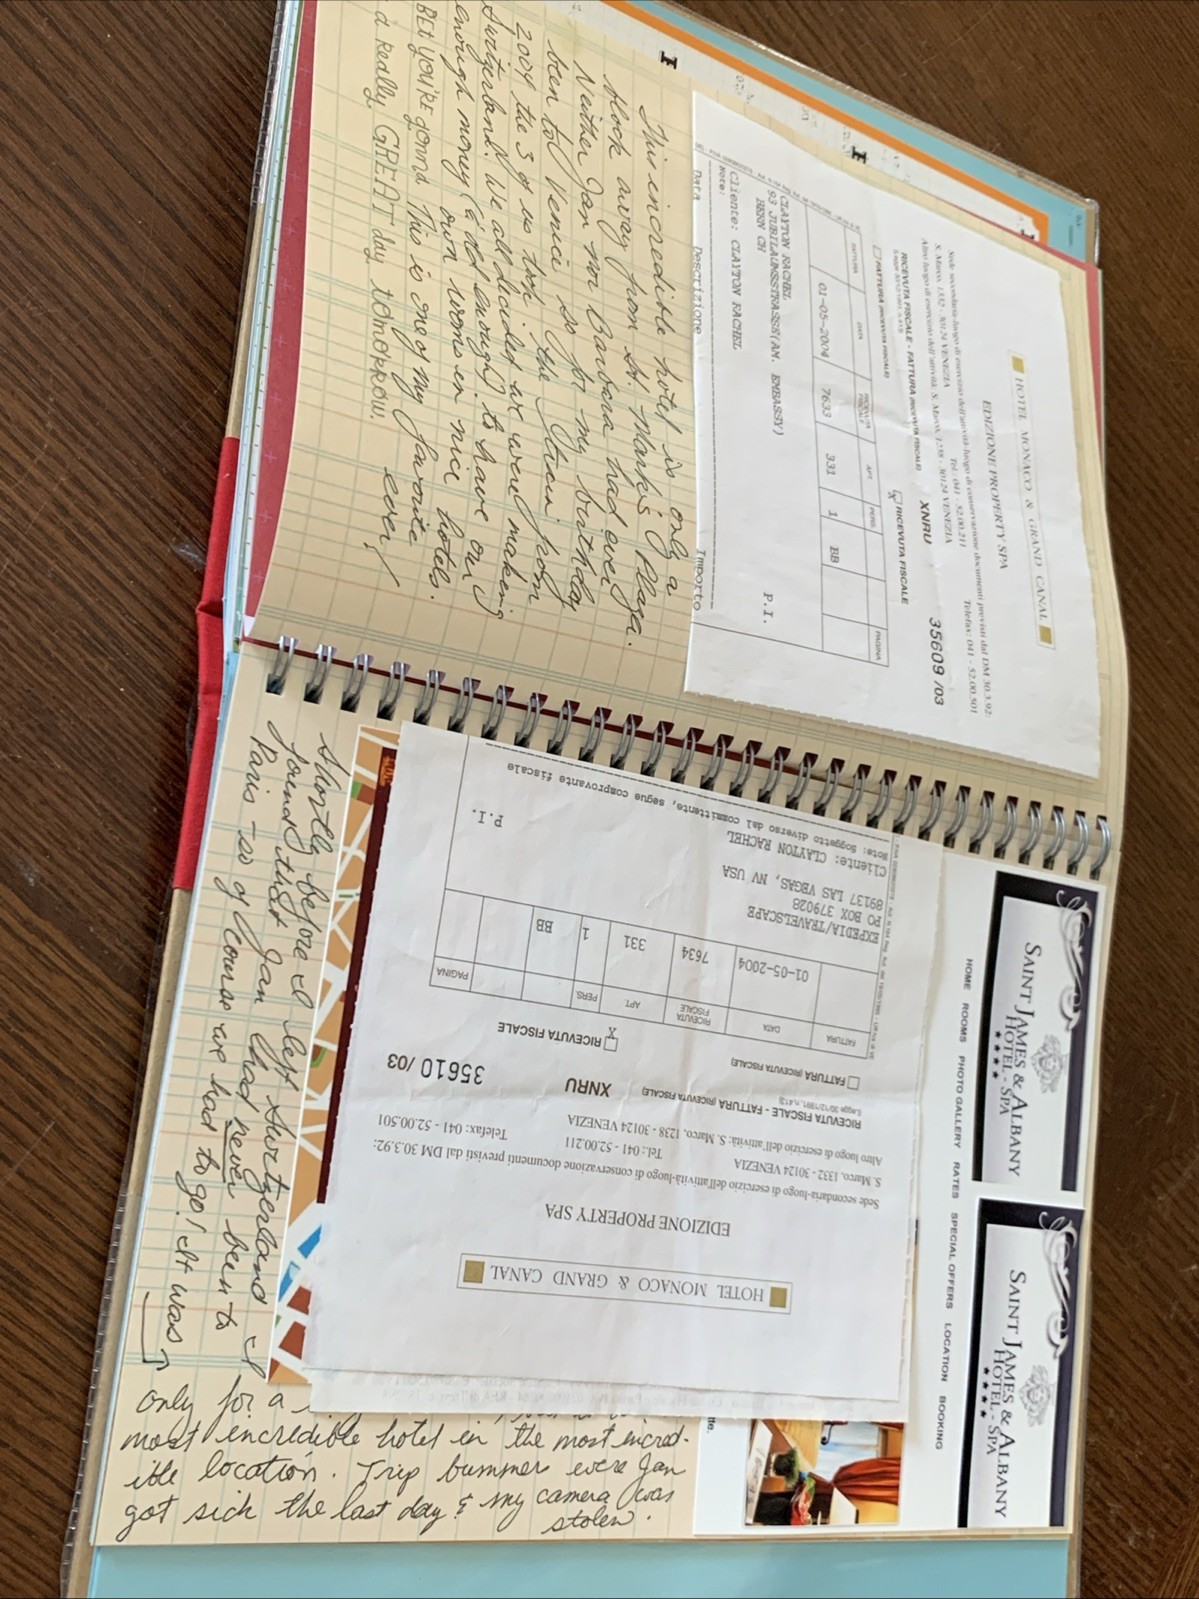 HOTEL MONACO & GRAND CANAL
EDIZIONE PROPERTY SPA
Sede secondaria-luogo di esercizio dell'attività-luogo di conservazione documenti previsti dal DM 30.3.92:
S. Marco, 1332 - 30124 VENEZIA Tel.: 041 - 52.00.211 Telefax: 041 - 52.00.501
Altro luogo di esercizio dell'attività: S. Marco, 1238 - 30124 VENEZIA
RICEVUTA FISCALE - FATTURA (RICEVUTA FISCALE) XNRU 35609 /03
FATTURA (RICEVUTA FISCALE) X RICEVUTA FISCALE
FATTURA DATA RICEVUTA FISCALE APT. PERS. PAGINA
01-05-2004 7633 331 1 BB
CLAYTON RACHEL
93 JUBILAUMSSTRASSE(AM. EMBASSY)
BERN CH
P.I.
Cliente: CLAYTON RACHEL
Note:
Data Descrizione Importo
This incredible hotel is only a
block away from St. Mark's Plaza.
Neither Jan nor Barbara had ever
been to Venice so for my birthday
2004 the 3 of us took the train from
Switzerland. We all decided we were making
enough money (& old enough) to have our
own rooms in nice hotels.
This is one of my favorite
ever!
BET YOU'RE gonna
a Really GREAT day tomorrow.
SAINT JAMES & ALBANY
HOTEL - SPA
SAINT JAMES & ALBANY
HOTEL - SPA
HOME ROOMS PHOTO GALLERY RATES SPECIAL OFFERS LOCATION BOOKING
HOTEL MONACO & GRAND CANAL
EDIZIONE PROPERTY SPA
Sede secondaria-luogo di esercizio dell'attività-luogo di conservazione documenti previsti dal DM 30.3.92:
S. Marco, 1332 - 30124 VENEZIA Tel.: 041 - 52.00.211 Telefax: 041 - 52.00.501
Altro luogo di esercizio dell'attività: S. Marco, 1238 - 30124 VENEZIA
RICEVUTA FISCALE - FATTURA (RICEVUTA FISCALE) XNRU 35610 /03
(Legge 30/12/1991, n.413)
FATTURA (RICEVUTA FISCALE) X RICEVUTA FISCALE
FATTURA DATA RICEVUTA FISCALE APT. PERS. PAGINA
01-05-2004 7634 331 1 BB
EXPEDIA/TRAVELSCAPE
PO BOX 379028
89137 LAS VEGAS, NV USA
P.I.
Cliente: CLAYTON RACHEL
Note: Soggetto diverso dal committente, segue comprovante fiscale
Shortly before I left Switzerland I
found that Jan had never been to
Paris - so of course we had to go! It was
only for a
most incredible hotel in the most incred-
ible location. Trip bummer were Jan
got sick the last day & my camera was
stolen.